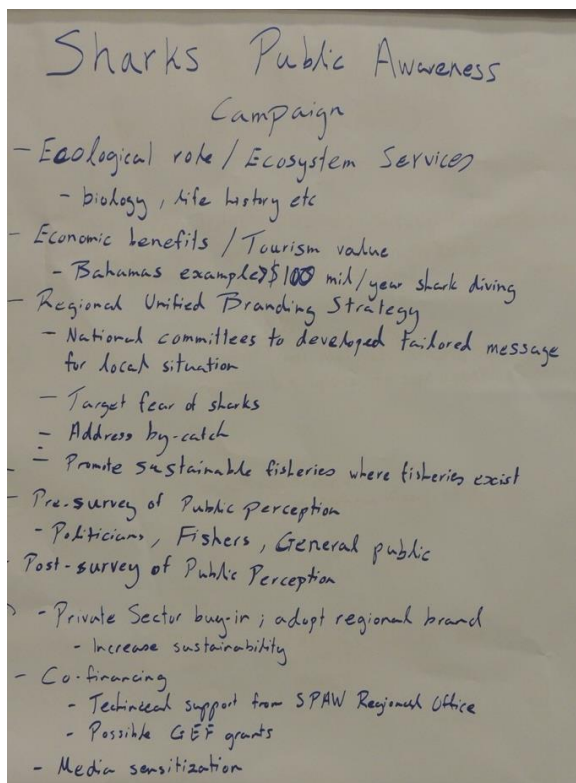 Sharks Public Awareness
Campaign
- Ecological role / Ecosystem Services
- biology, life history etc
- Economic benefits / Tourism value
- Bahamas example >$100 mil/year shark diving
- Regional Unified Branding Strategy
- National committees to developed tailored message
for local situation
- Target fear of sharks
- Address by-catch
- Promote sustainable fisheries where fisheries exist
- Pre-survey of Public perception
- Politicians, Fishers, General public
- Post-survey of Public Perception
- Private Sector buy-in; adopt regional brand
- Increase sustainability
- Co-financing
- Technical support from SPAW Regional Office
- Possible GEF grants
- Media sensitization